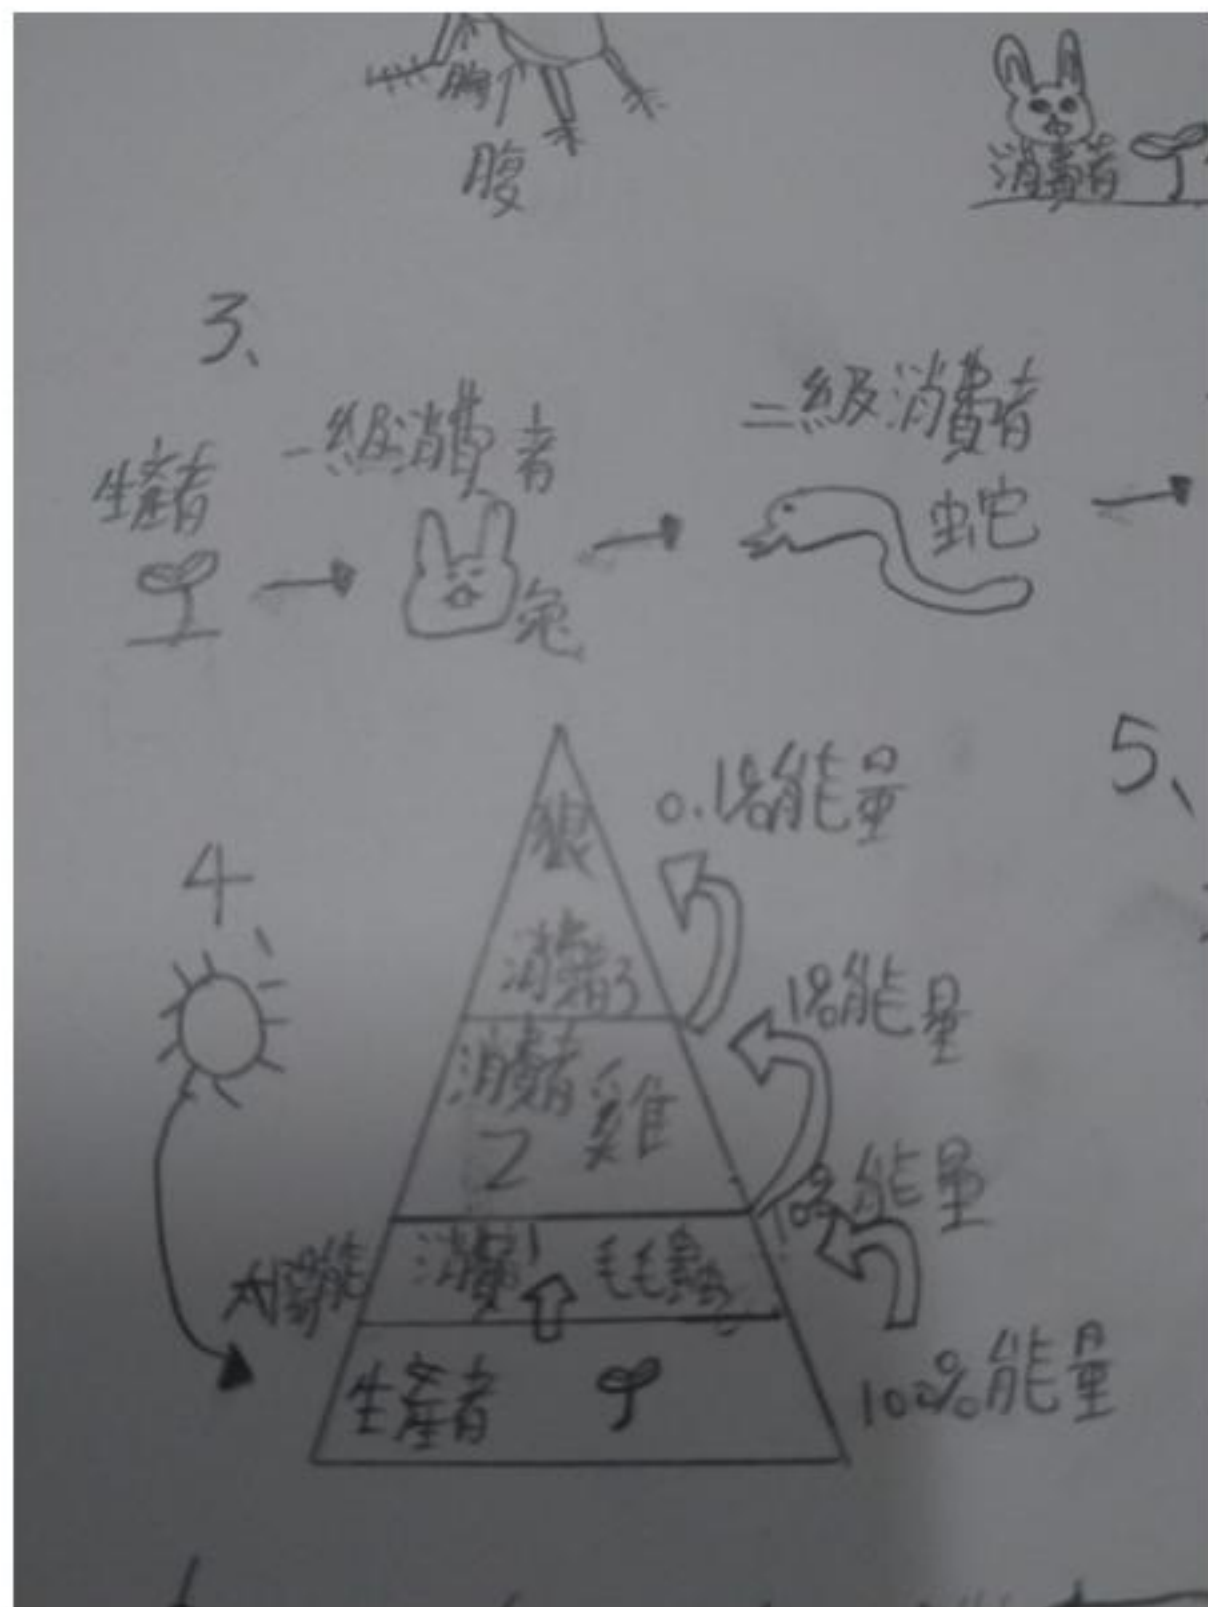 胸
腹
消費者
3、
生產者
一級消費者
兔
二級消費者
蛇
4、
狼
消費者3
消費者
2
雞
消費1
毛毛蟲
生產者
太陽能
0.1%能量
1%能量
10%能量
100%能量
5、